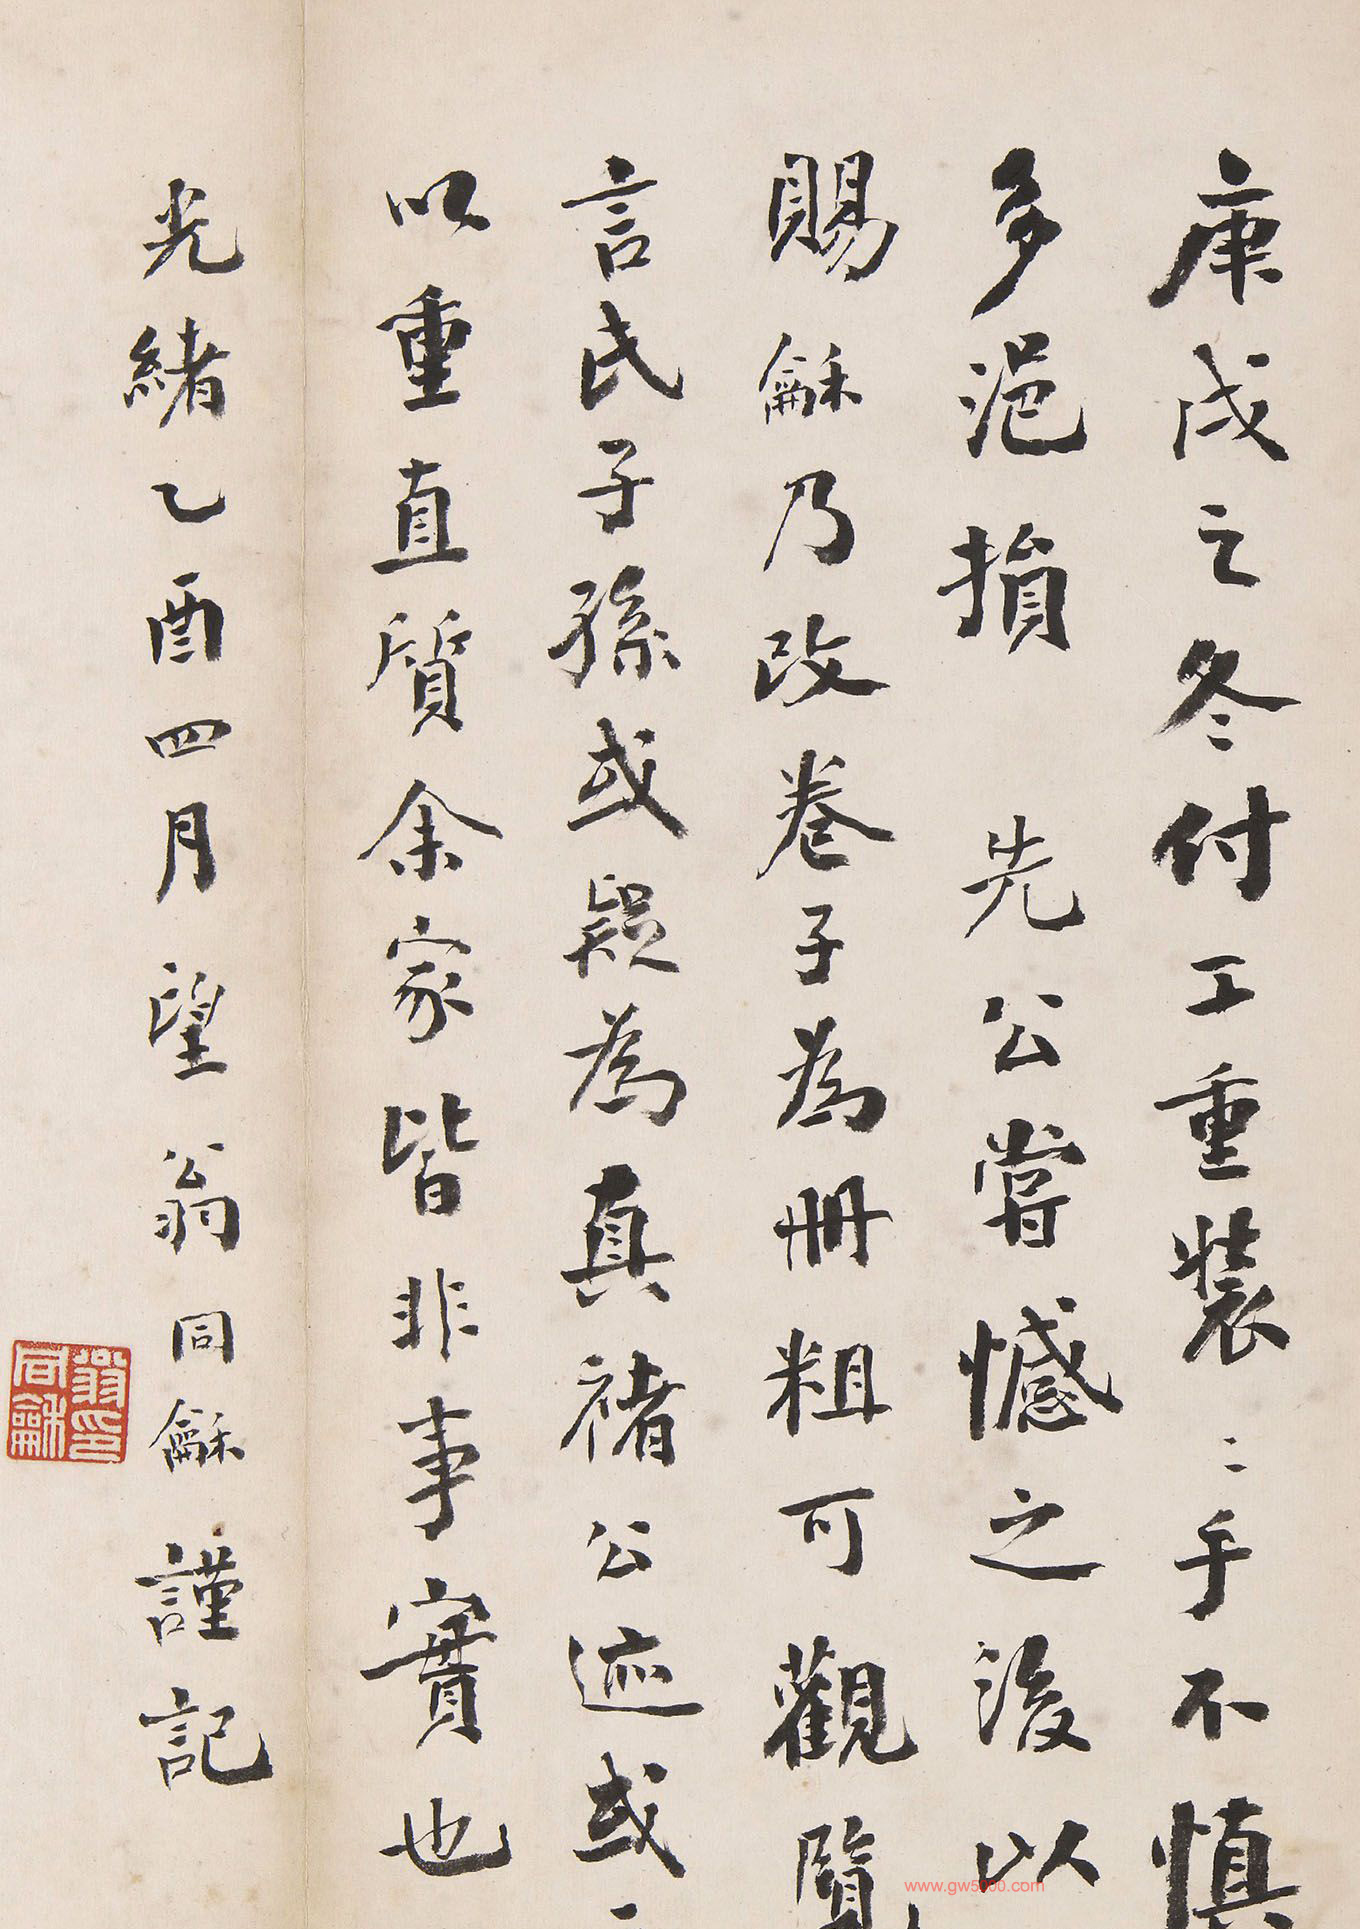 庚戌之冬付工重裝〻手不慎
多浥損 先公嘗憾之後以
賜龢乃改卷子為冊粗可觀覽
言氏子孫或疑為真褚公迹或
以重直質余家皆非事實也
光緒乙酉四月望翁同龢謹記
翁同龢印
www.gw5000.com